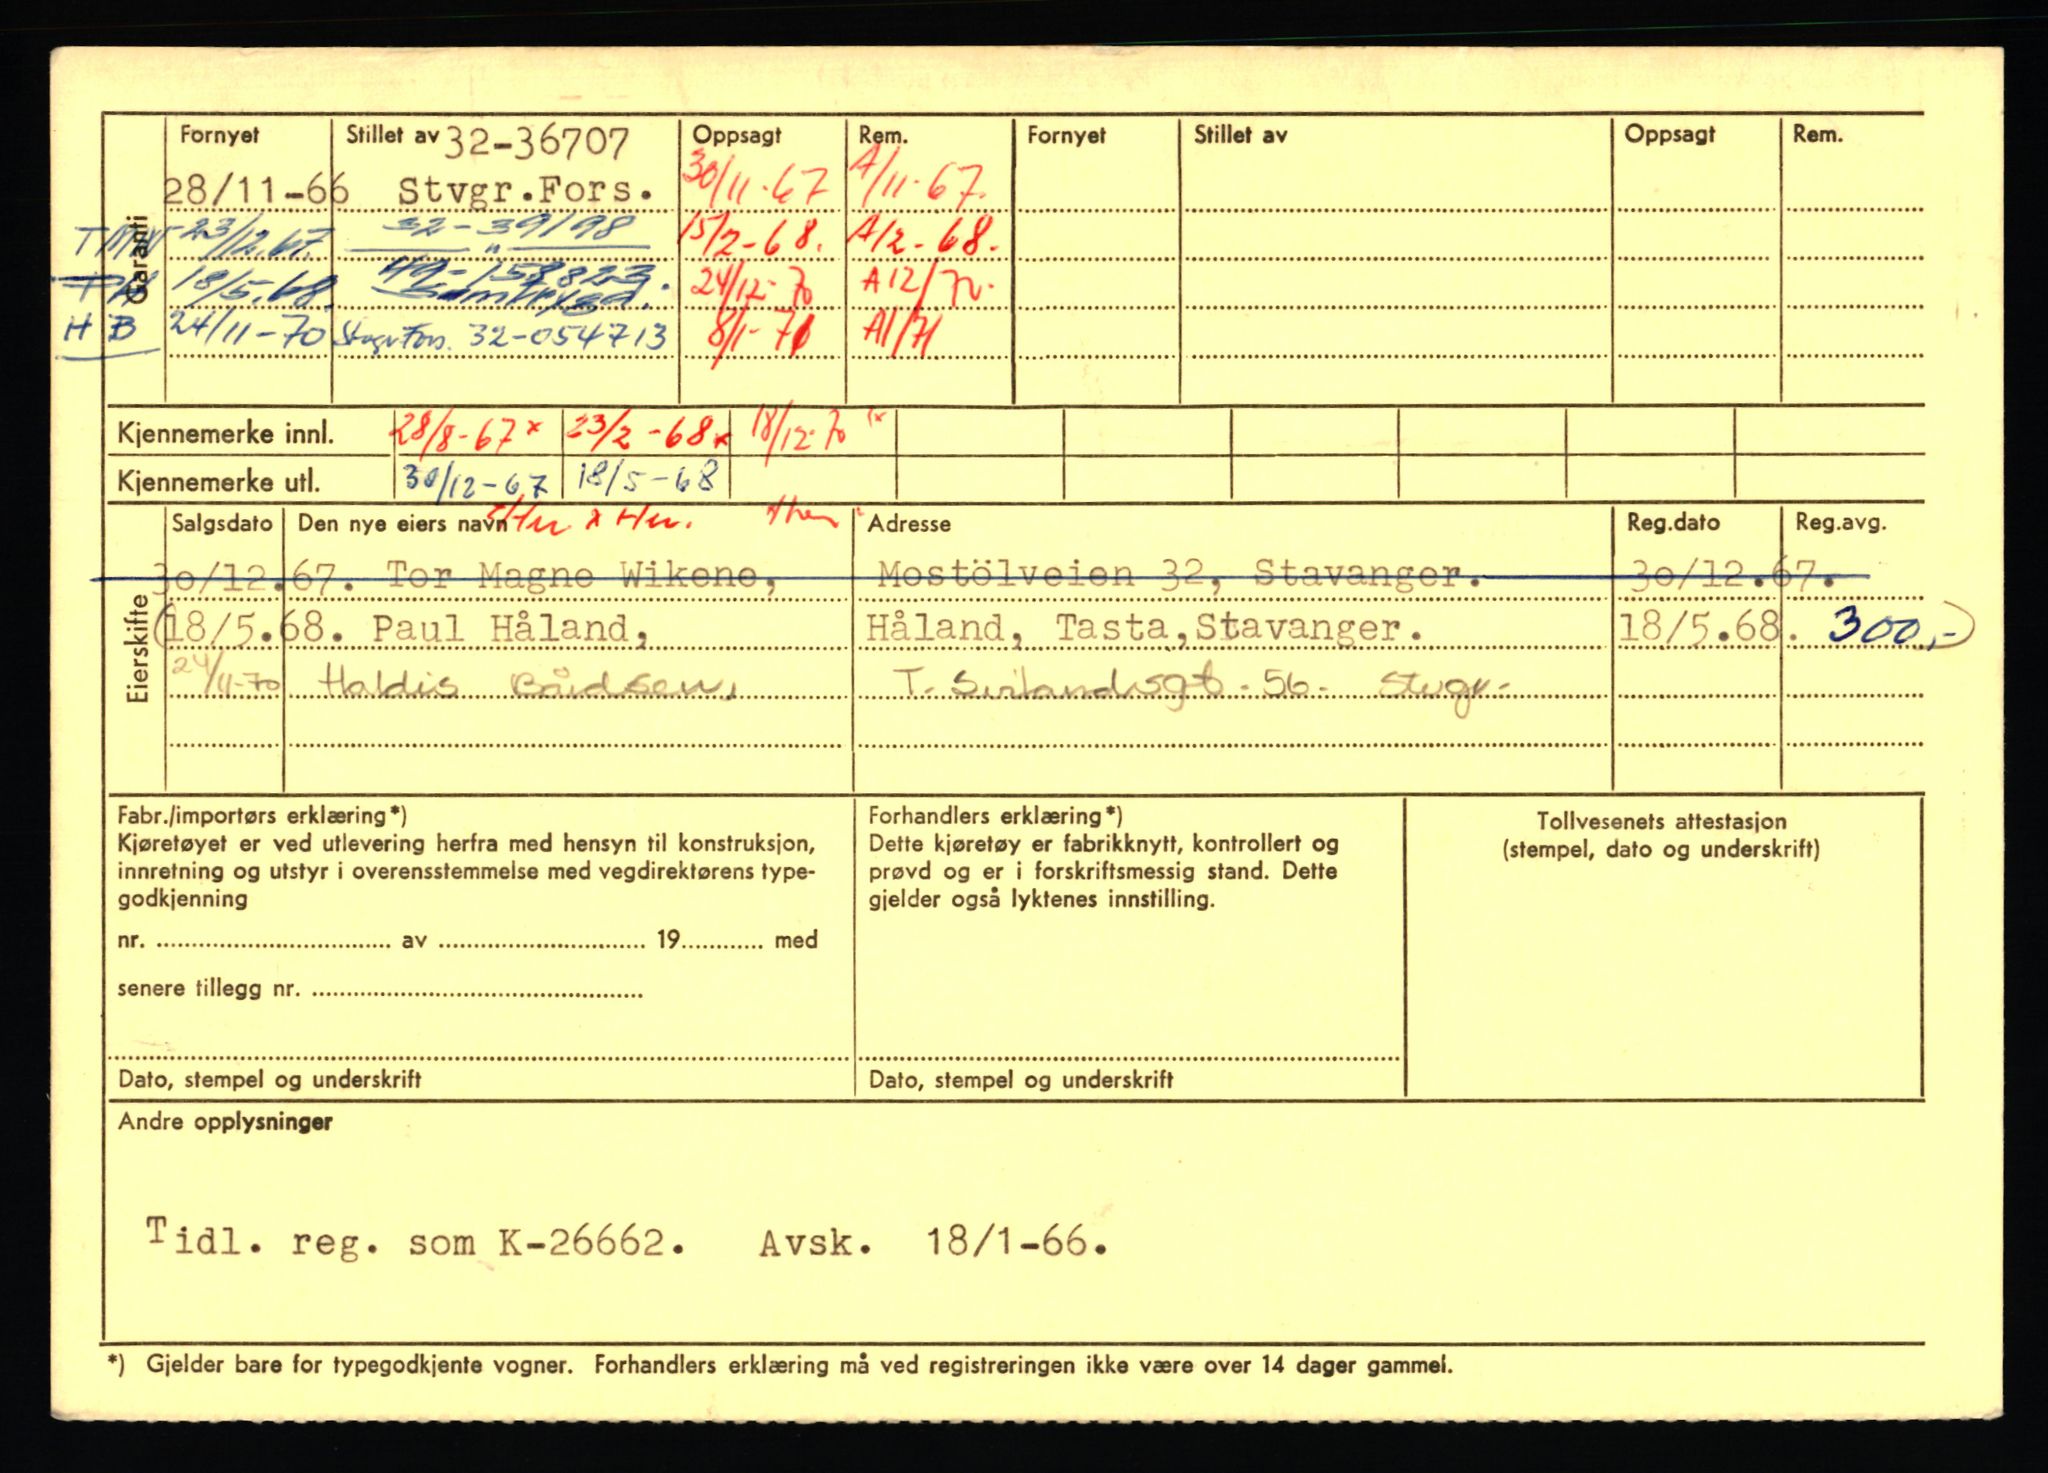 Fornyet Stillet av 32-36707 Oppsagt Rem. Fornyet Stillet av Oppsagt Rem.
28/11-66 Stvgr.Fors. 30/11-67 A/11-67.
23/12.67. 32-39198 15/2-68. A/2-68.
18/5.68. 49-158823. 24/12-70 A12/70.
HB 24/11-70 Stvgr Fors. 32-054713 8/1-71 A1/71
Garanti
Kjennemerke innl. 28/8-67 x 23/2-68 x 18/12-70 x
Kjennemerke utl. 30/12-67 18/5-68
Salgsdato Den nye eiers navn Adresse Reg.dato Reg.avg.
30/12.67. Tor Magne Wikene, Mostölveien 32, Stavanger. 30/12.67.
(18/5.68. Paul Håland, Håland, Tasta,Stavanger. 18/5.68. 300,-)
24/11-70 Haldis Bårdsen, 56. Stvgr.
Eierskifte
Fabr./importørs erklæring*)
Kjøretøyet er ved utlevering herfra med hensyn til konstruksjon,
innretning og utstyr i overensstemmelse med vegdirektørens type-
godkjenning
nr. av 19 med
senere tillegg nr.
Dato, stempel og underskrift
Forhandlers erklæring*)
Dette kjøretøy er fabrikknytt, kontrollert og
prøvd og er i forskriftsmessig stand. Dette
gjelder også lyktenes innstilling.
Dato, stempel og underskrift
Tollvesenets attestasjon
(stempel, dato og underskrift)
Andre opplysninger
Tidl. reg. som K-26662. Avsk. 18/1-66.
*) Gjelder bare for typegodkjente vogner. Forhandlers erklæring må ved registreringen ikke være over 14 dager gammel.